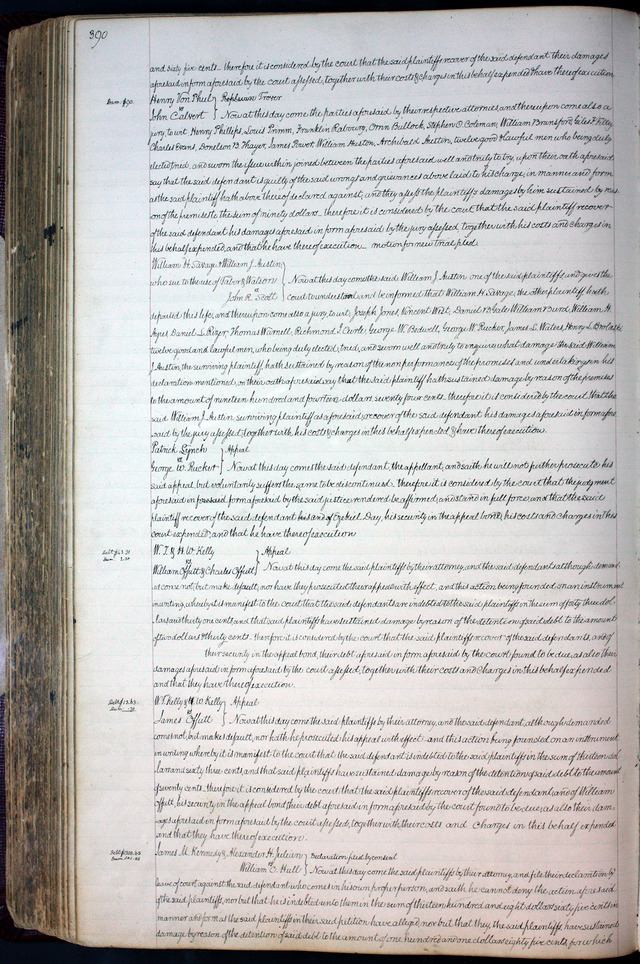 390
and sixty five cents. therefore it is considered by the court that the said plaintiffs recover of the said defendant their damages
aforesaid in form aforesaid by the court assessed, together with their costs & charges in this behalf expended & have thereof execution
Dam. $90. Henry Von Phul } Trover
vs
John Calvert } Now at this day come the parties aforesaid by their respective attornies, and thereupon come also a
jury, to wit, Henry Phillips, Louis Primm, Franklin Rabourg, Orrin Bullock, Stephen D. Coleman, William Bransford, Giles F. Filley
Charles Evans, Donelson B. Thayer, James Pawot, William Huston, Archibald Austin, twelve good & lawful men who being duly
elected, tried, and sworn the issue within joined between the parties aforesaid well and truly to try, upon their oath aforesaid
say that the said defendant is guilty of the said wrongs and grievances above laid to his charge, in manner and form
as the said plaintiff hath above thereof declared against, and they assess the plaintiff's damages by him sustained by reas
on of the premises to the sum of ninety dollars. therefore it is considered by the court that the said plaintiff recover
of the said defendant his damages aforesaid in form aforesaid by the jury assessed, together with his costs and charges in
this behalf expended, and that he have thereof execution. motion for new trial filed.
William H. Savage & William J. Austin
who sue to the use of Tabor & Watson }
vs
John R. Scott } Now at this day comes the said William J. Austin one of the said plaintiffs and gives the
court to understand and be informed that William H. Savage, the other plaintiff hath
departed this life, and thereupon come also a jury, to wit, Joseph Jones, Vincent West, Daniel D. Gale, William F. Curd, William H.
Daniel L. Roger, Thomas Warnell, Richmond J. Curle, George W. Bidwell, George W. Rucker, James S. Wates, Henry L.
twelve good and lawful men, who being duly elected, tried, and sworn well and truly to enquire what damages the said William
J. Austin, the surviving plaintiff, hath sustained by reason of the non performance of the promises and undertakings in his
declaration mentioned, on their oath aforesaid, say that the said plaintiff hath sustained damage by reason of the premises
to the amount of nineteen hundred and fourteen dollars seventy four cents. therefore it is considered by the court that the
said William J. Austin surviving plaintiff as aforesaid, recover of the said defendant his damages aforesaid in form afore
said by the jury assessed, together with his costs & charges in this behalf expended & have thereof execution.
Patrick Lynch } Appeal
vs
George W. Rucker } Now at this day comes the said defendant, the appellant, and saith he will not further prosecute his
said appeal, but voluntarily suffers the same to be discontinued. therefore it is considered by the court that the judgment
aforesaid in form aforesaid by the said justice rendered be affirmed, and stand in full force and that the said
plaintiff recover of the said defendant and of Ezekiel Day, his security in the appeal bond, his costs and charges in this
court expended, and that he have thereof execution
W. T. & H. W. Kelly } Appeal
vs
William Offitt & Charles Offitt } Now at this day come the said plaintiffs by their attorney, and the said defendants although demand
ed come not, but make default, nor have they prosecuted their appeal with effect, and this action being founded on an instrument
in writing, whereby it is manifest to the court that the said defendants are indebted to the said plaintiffs in the sum of sixty three dol
lars and thirty one cents, and that said plaintiffs have sustained damage by reason of the detention of said debt to the amount
of two dollars & thirty cents. therefore it is considered by the court that the said plaintiffs recover of the said defendants, and of
their security in the appeal bond, their debt aforesaid in form aforesaid by the court found to be due, as also their
damages aforesaid in form aforesaid by the court assessed, together with their costs and charges in this behalf expended
and that they have thereof execution.
W. T. Kelly & H. W. Kelly } Appeal
vs
James Offitt } Now at this day come the said plaintiffs by their attorney, and the said defendant, although demanded
comes not, but makes default, nor hath he prosecuted his appeal with effect. and this action being founded on an instrument
in writing whereby it is manifest to the court that the said defendant is indebted to the said plaintiffs in the sum of thirteen dol
lars and sixty three cents, and that said plaintiffs have sustained damage by reason of the detention of said debt to the amount
of seventy cents. therefore it is considered by the court that the said plaintiffs recover of the said defendant, and of William
Offitt, his security in the appeal bond their debt aforesaid in form aforesaid by the court found to be due, as also their dam
ages aforesaid in form aforesaid by the court assessed, together with their costs and charges in this behalf expended
and that they have thereof execution.
James M. Kennedy & Alexander H. } Declaration filed by consent
vs
William C. Hull } Now at this day come the said plaintiffs by their attorney, and file their declaration by
leave of court against the said defendant who comes in his own proper person, and saith he cannot deny the action aforesaid
of the said plaintiffs, nor but that he is indebted unto them in the sum of thirteen hundred and eight dollars sixty five cents in
manner and form as the said plaintiffs in their said petition have alleged, nor but that they, the said plaintiffs, have sustained
damage by reason of the detention of said debt to the amount of one hundred and one dollars eighty five cents, for which